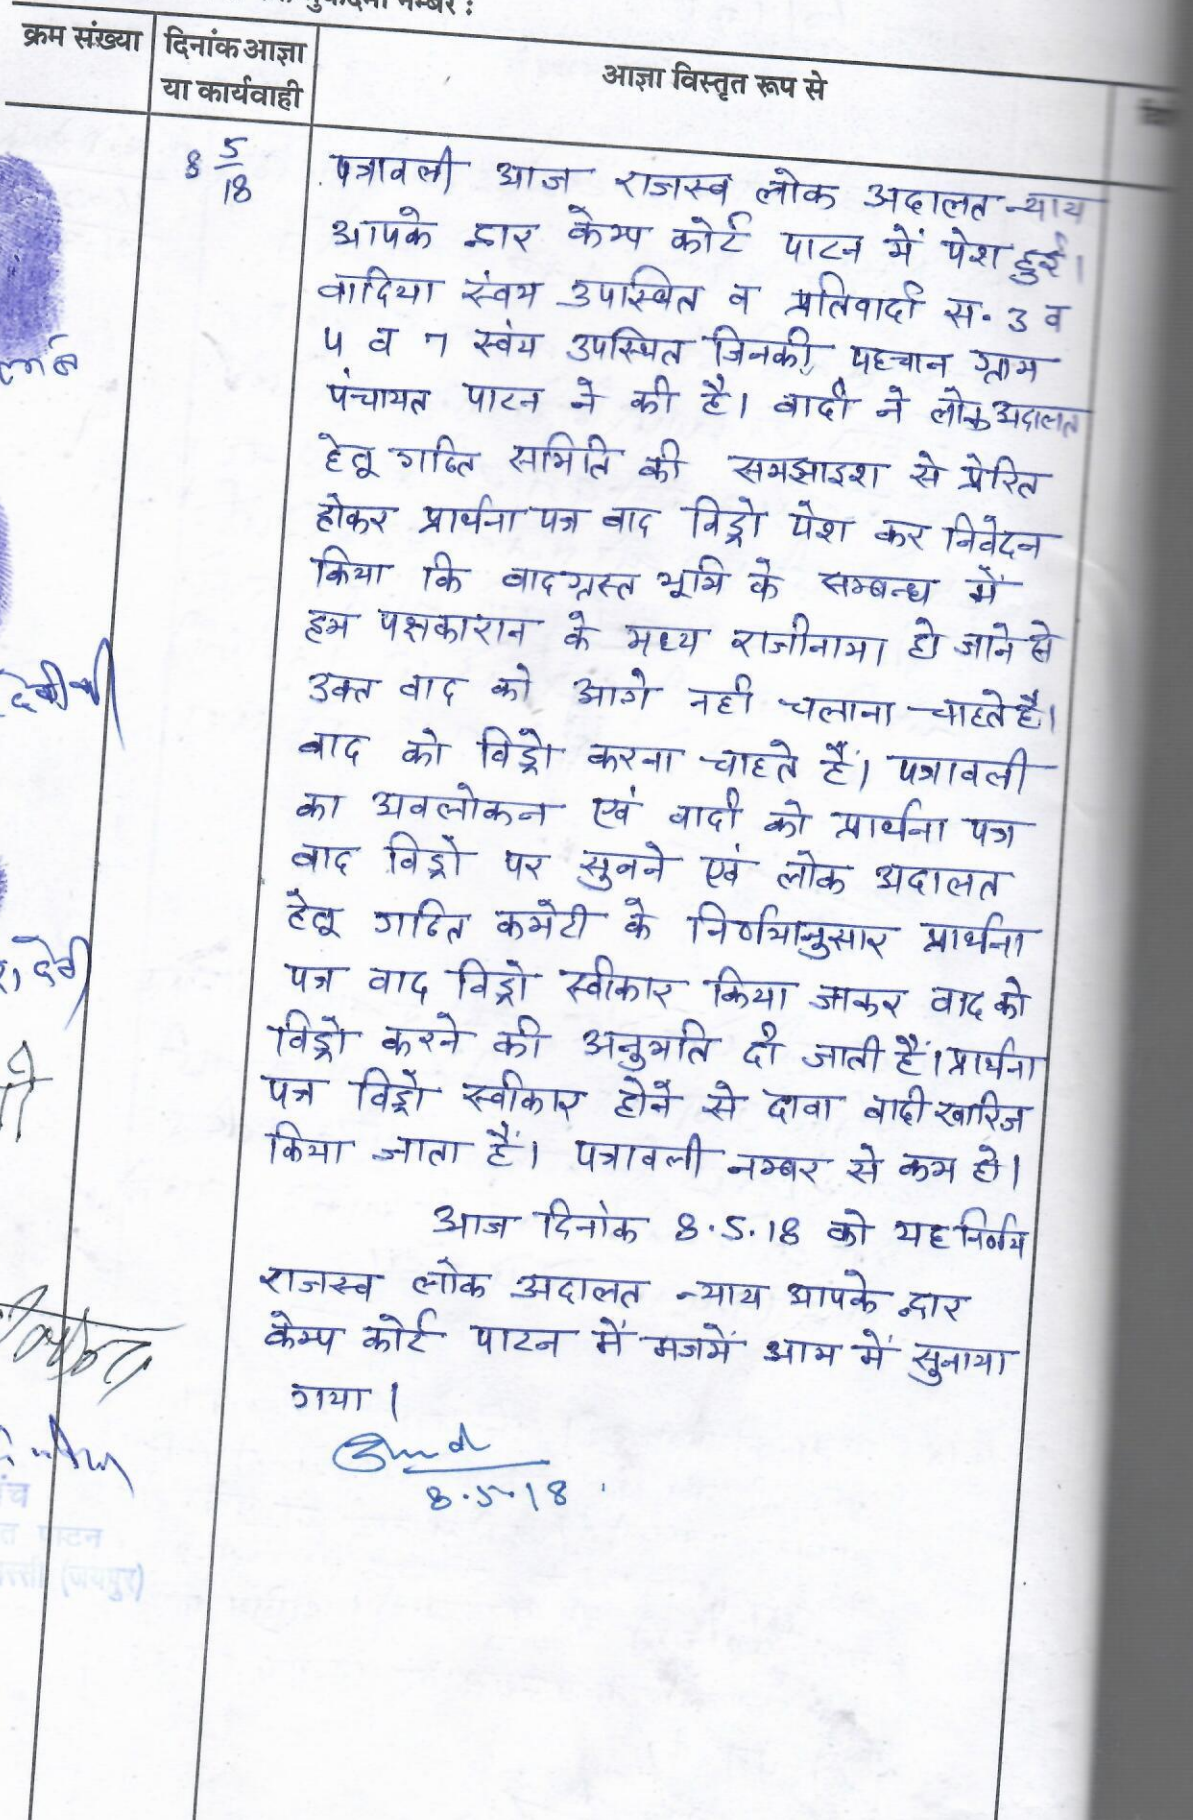 नम्बर :
क्रम संख्या
दिनांक आज्ञा
या कार्यवाही
आज्ञा विस्तृत रूप से
8 5/18
पत्रावली आज राजस्व लोक अदालत न्याय
आपके द्वार केम्प कोर्ट पाटन में पेश हुई।
वादिया स्वंय उपस्थित व प्रतिवादी स. 3 व
4 व 7 स्वंय उपस्थित जिनकी पहचान ग्राम
पंचायत पाटन ने की है। वादी ने लोक अदालत
हेतू गठित समिति की समझाइश से प्रेरित
होकर प्रार्थना पत्र वाद विड्रो पेश कर निवेदन
किया कि वादग्रस्त भूमि के सम्बन्ध में
हम पक्षकारान के मध्य राजीनामा हो जाने से
उक्त वाद को आगे नही चलाना चाहते है।
वाद को विड्रो करना चाहते हैं। पत्रावली
का अवलोकन एवं वादी को प्रार्थना पत्र
वाद विड्रो पर सुनने एवं लोक अदालत
हेतू गठित कमेटी के निर्णयानुसार प्रार्थना
पत्र वाद विड्रो स्वीकार किया जाकर वाद को
विड्रो करने की अनुमति दी जाती हैं। प्रार्थना
पत्र विड्रो स्वीकार होने से दावा वादी खारिज
किया जाता हैं। पत्रावली नम्बर से कम हो।
आज दिनांक 8.5.18 को यह निर्णय
राजस्व लोक अदालत न्याय आपके द्वार
केम्प कोर्ट पाटन में मजमें आम में सुनाया
गया।
8.5.18
देवी
पाटन
(जयपुर)